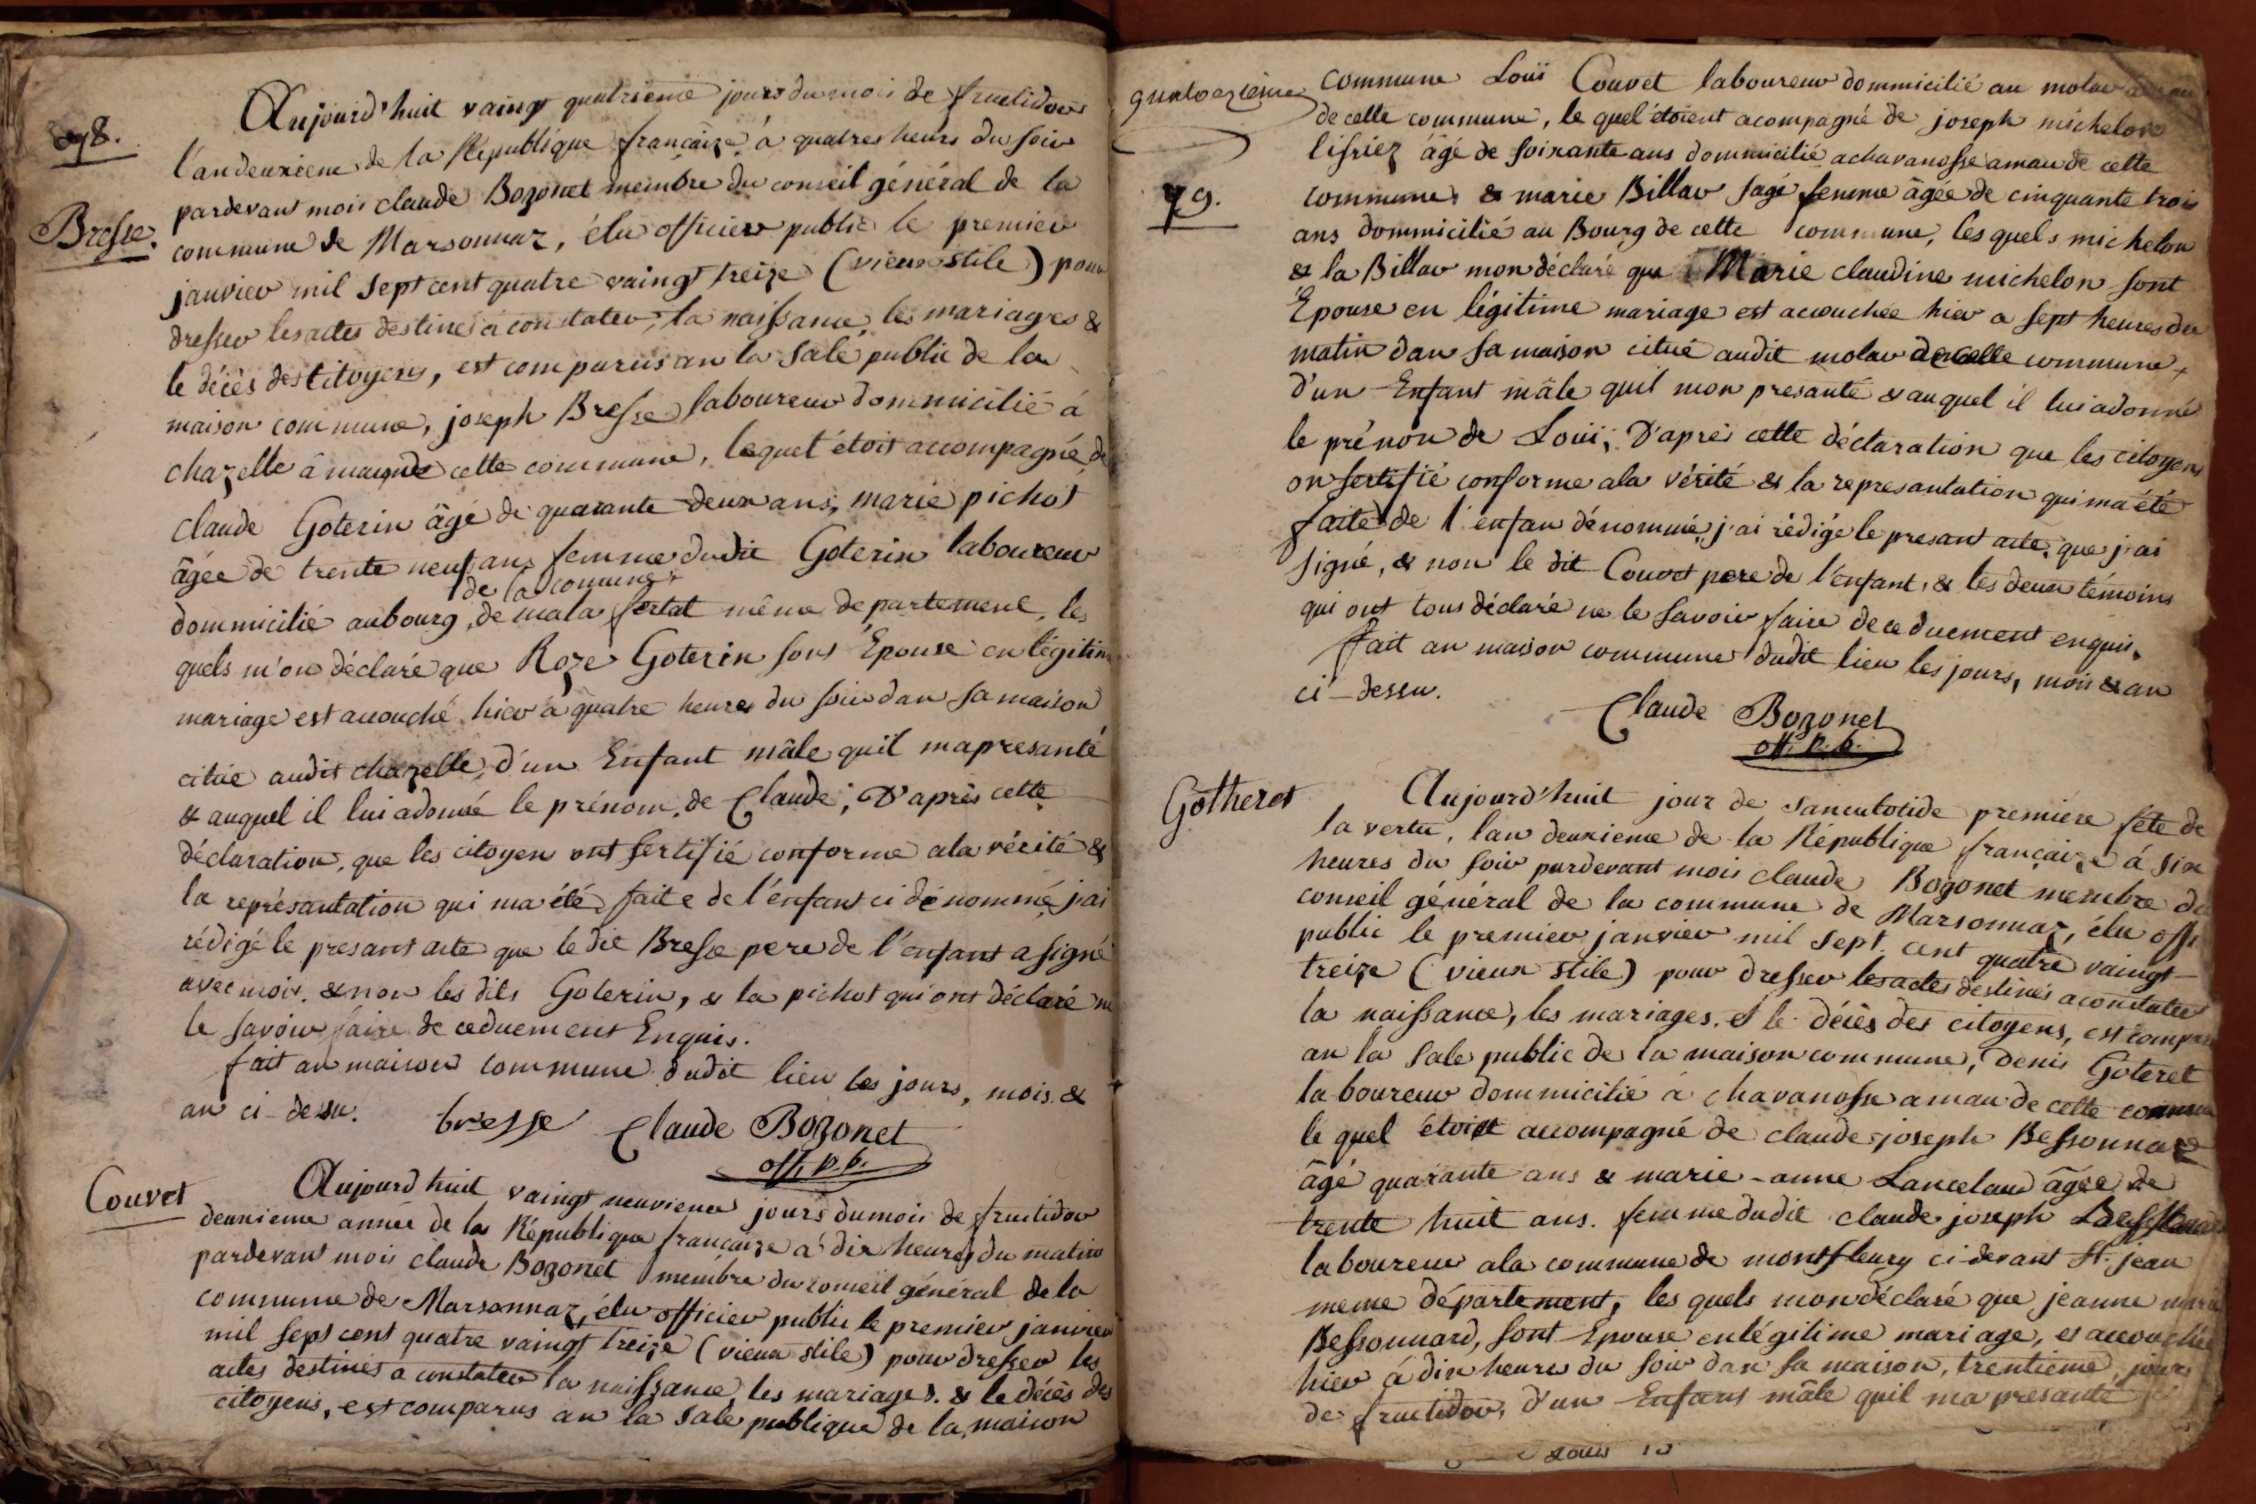 Aujourd'huit vaingt quatrieme jours du mois de fructidors
l'an deuxieme de la République françaize à quatres heurs du soir
pardevant mois claude Bozonet membre du conseil général de la
commune de Marsonnaz, élu officier public le premier
Bresse.
janvier mil sept cent quatre vaingt treize (vieux stile) pour
dresser les actes destinés à constater, la naissance, les mariages &
le décès des Citoyens, est comparus an la sale public de la
maison commune, joseph Bresse laboureur dommicilié à
chazelle à maude cette commune, lequel étoit accompagné de
claude Goterin âgé de quarante deux ans, marie pichot
âgée de trente neuf ans femme dudit Goterin laboureur
de la comune
dommicilié au bourg, de mala fertat même departement, les
quels m'on déclaré que Roze Goterin sons Épouse en légitime
mariage est accouché hier à quatre heures du soir dan sa maison
citée audit chazelle, d'un Enfant mâle qu'il ma presanté
& auquel il lui a donné le prénom, de Claude; D'après cette
déclaration, que les citoyen ont sertifié conforme a la vérité &
la représantation qui ma été faite de l'enfant ci dénommé, j'ai
rédigé le presant acte que le dit Bresse pere de l'enfant a signé
avec mois, & non les dits Goterin, & la pichot qui ont déclaré ne
le savoir faire de ce duement Enquis.
fait an maison commune dudit lieu les jours, mois &
an ci-dessu. bresse Claude Bozonet
off. p. b.
Couvet
Aujourd huit vaingt neuvieme jours du mois de fructidor
deuxieme année de la République françaize à dix heures du matin
pardevant mois claude Bozonet membre du conseil général de la
commune de Marsonnaz, élu officier public le premier janvier
mil sept cent quatre vaingt treize (vieux stile) pour dresser les
actes destinés a constater la naissance, les mariages. & le décès des
citoyens, est comparus an la sale publique de la maison
quatorzieme
79.
commune Louï Couvet laboureur dommicilié au molar
de cette commune, le quel étoient acompagné de joseph michelon
lisriez âgé de soixante ans dommicilié a chavanosse amau de cette
commune, & marie Billav sage femme âgée de cinquante trois
ans dommicilié au Bourg de cette commune, les quels michelon
& la Billav mon déclaré que Marie claudine michelon sont
Épouse en légitime mariage est accouchée hier a sept heures du
matin dan sa maison citué audit molar de cette commune,
d'un Enfant mâle quil mon presanté & auquel il lui a donné
le prénon de Louï; D'après cette déclaration que les citoyens
on sertifié conforme a la vérité & la represantation qui ma été
faite de l'enfan dénommé, j'ai rédigé le presant acte, que j'ai
signé, & non le dit Couvet pere de l'enfant, & les deux témoins
qui ont tous déclaré ne le savoir faire de ce duement enquis.
fait an maison commune dudit lieu les jours, mois & an
ci-dessu.
Claude Bozonet
off. p. b.
Gotheret
Aujourd'huit jour de sanculotide première fête de
la vertu, lan deuxieme de la République françaize à six
heures du soir pardevant mois claude Bozonet membre du
conseil général de la commune de Marsonnaz, élu offi
public le premier janvier mil sept cent quatre vaingt
treize (vieux stile) pour dresser les actes destinés a constater
la naissance, les mariages. & le décès des citoyens, est compar
an la sale public de la maison commune, Denis Goteret
laboureur dommicilié à chavanosse amau de cette commu
le quel étoit accompagné de claude joseph Bessonnar
âgé quarante ans & marie-anne Lancelaud âgée de
trente huit ans. femme dudit claude joseph
laboureur a la commune de montfleury ci-devant St. jean
meme département, les quels mon déclaré que jeanne marie
Bessonnard, sont Epouse en légitime mariage, es accouchée
hier à dix heure du soir dan sa maison, trentieme, jours
de fructidor, d'un Enfant mâle quil ma presanté